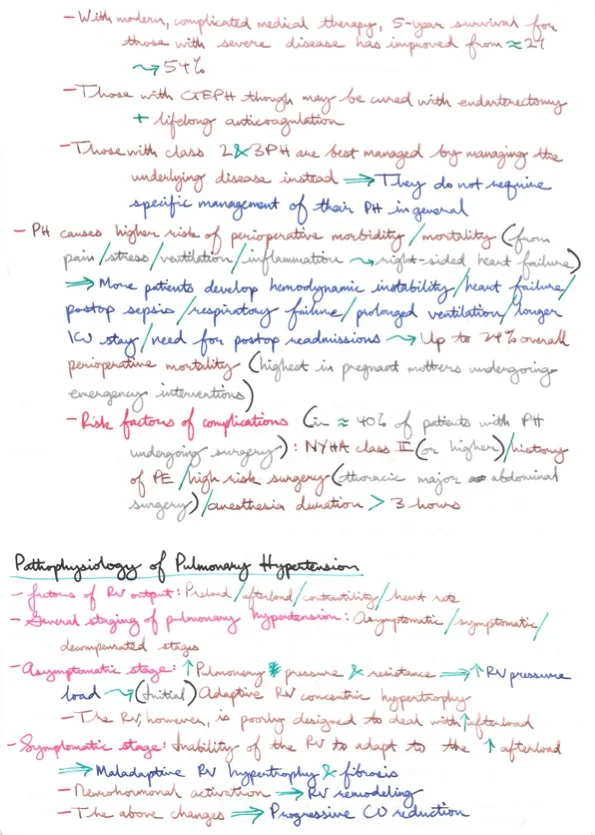 - With modern, complicated medical therapy, 5-year survival for
those with severe disease has improved from ≈ 27
⇝ 54%
- Those with CTEPH though may be cured with endarterectomy
+ lifelong anticoagulation
- Those with class 2 & 3 PH are best managed by managing the
underlying disease instead ⇒ They do not require
specific management of their PH in general
- PH causes higher risk of perioperative morbidity / mortality (from
pain / stress / ventilation / inflammation ⇝ right-sided heart failure)
⇒ More patients develop hemodynamic instability / heart failure /
postop sepsis / respiratory failure / prolonged ventilation / longer
ICU stay / need for postop readmissions ⇝ Up to 24% overall
perioperative mortality (highest in pregnant mothers undergoing
emergency interventions)
- Risk factors of complications (in ≈ 40% of patients with PH
undergoing surgery): NYHA class II (or higher) / history
of PE / high risk surgery (thoracic major abdominal
surgery) / anesthesia duration > 3 hours
Pathophysiology of Pulmonary Hypertension
- factors of RV output: Preload / afterload / contractility / heart rate
- General staging of pulmonary hypertension: Asymptomatic / symptomatic /
decompensated stages
- Asymptomatic stage: ↑ Pulmonary pressure & resistance ⇒ ↑ RV pressure
load ⇝ (Initial) Adaptive RV concentric hypertrophy
- The RV, however, is poorly designed to deal with ↑ afterload
- Symptomatic stage: Inability of the RV to adapt to the ↑ afterload
⇒ Maladaptive RV hypertrophy & fibrosis
- Neurohormonal activation ⇒ RV remodeling
- The above changes ⇒ Progressive CO reduction